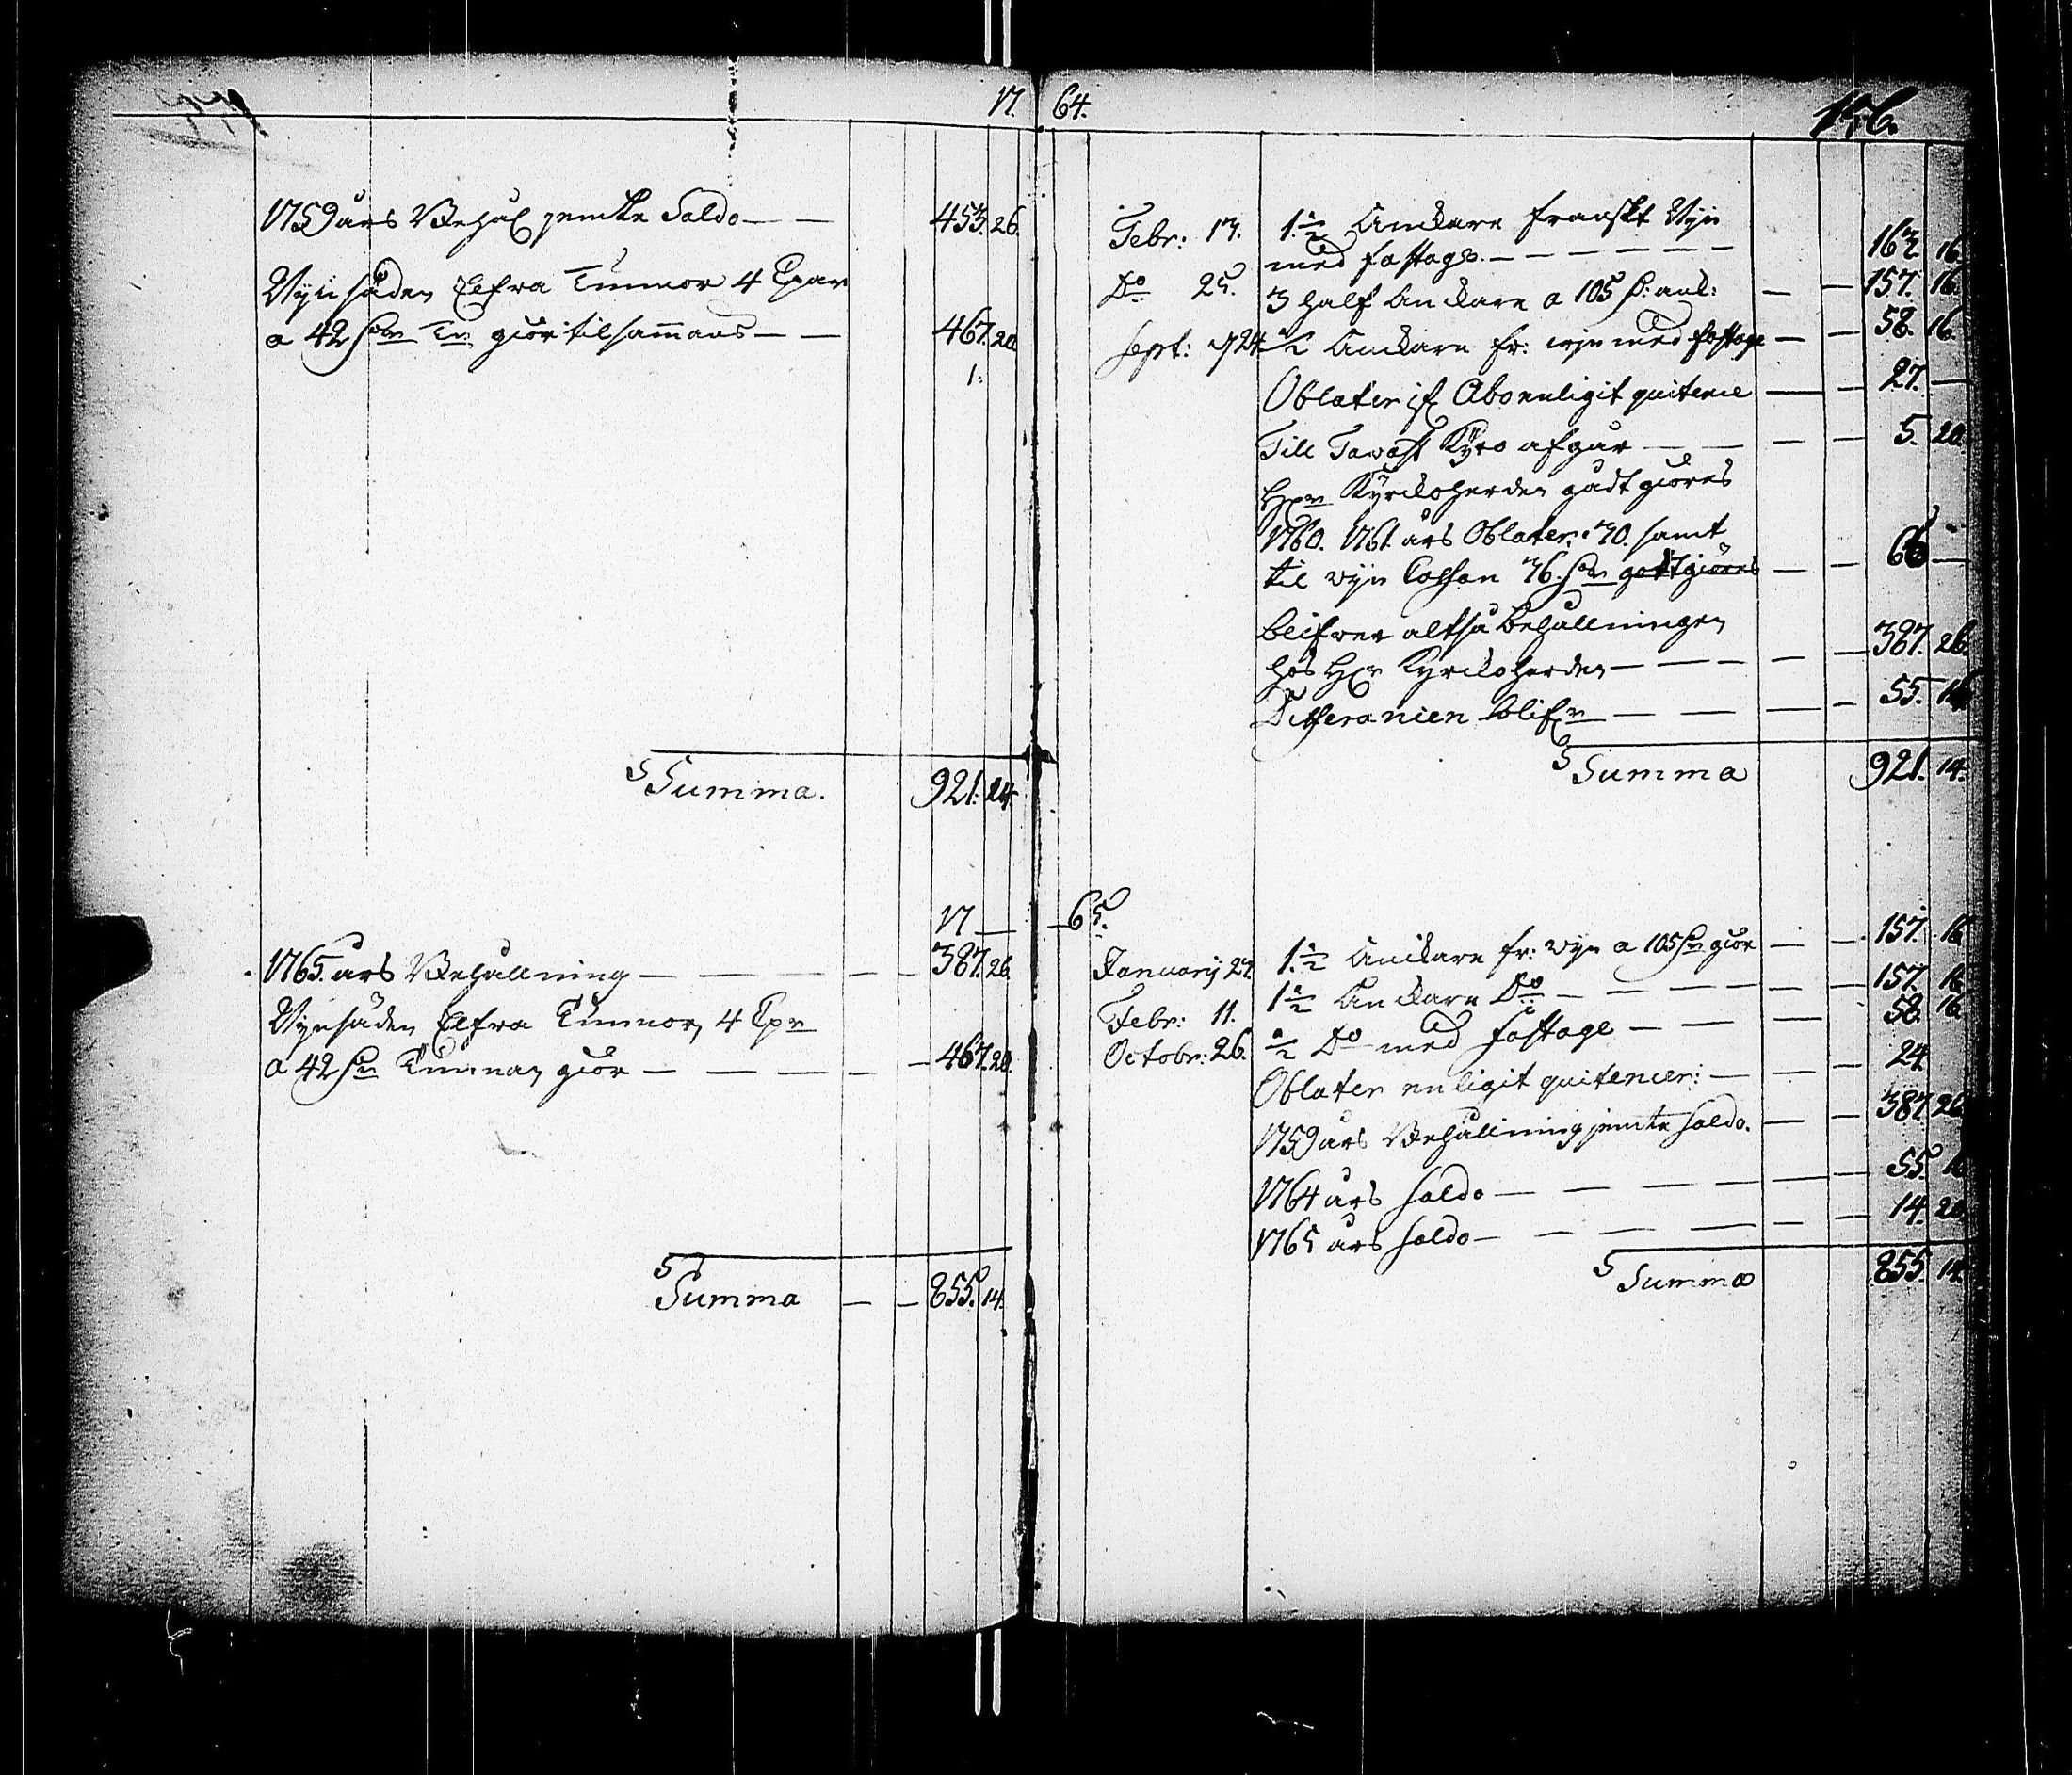 17
64.
176.
1759 års Behåll jemte Saldo — — 453. 26.
Vijnsäden Elfva Tunnor 4 Cpar
a 42 Tn giör tilsammans — — 467. 20.
1.
Summa. 921. 14.
Febr: 13. 1 1/2 Anckare franskt Vijn
med fastage — — — — — 163. 16.
Do 25. 3 half Anckare a 105 — — 157. 16.
Sept: 24 1/2 Anckare fr: wijn med fastage — — 58. 16.
Oblater enligit quitence — — 27. —
Till Tavast Kyro afgår — — — 5. 20.
Hr Kyrckoherden gådtgiöres
1760. 1761. års Oblater. 30. samt
til wijn Cassan 36. — — 66 —
blifver altså behållningen
hos Hr Kyrckoherden — — — — 387. 26.
— — — — 55. 16.
Summa 921. 14.
17 — — 65.
1765. års Behållning — — — — — 387. 26.
Vijnsäden Elfva Tunnor, 4 Cpr
a 42 Tunnan giör — — — — — 467. 20.
Summa — — 855. 14.
Januarij 27. 1 1/2 Anckare fr: wijn a 105 giör — — 157. 16
Febr: 11. 1 1/2 Anckare Do — — — — — 157. 16
Octobr: 26. 1/2 Do med fastage — — — 58. 16
Oblater enligit quitencer: — — — 24
1759 års Behållning jemte saldo. — — 387. 26
1764 års saldo — — — — — 55. 16
1765 års saldo — — — — — 14. 20.
Summa 855. 14.